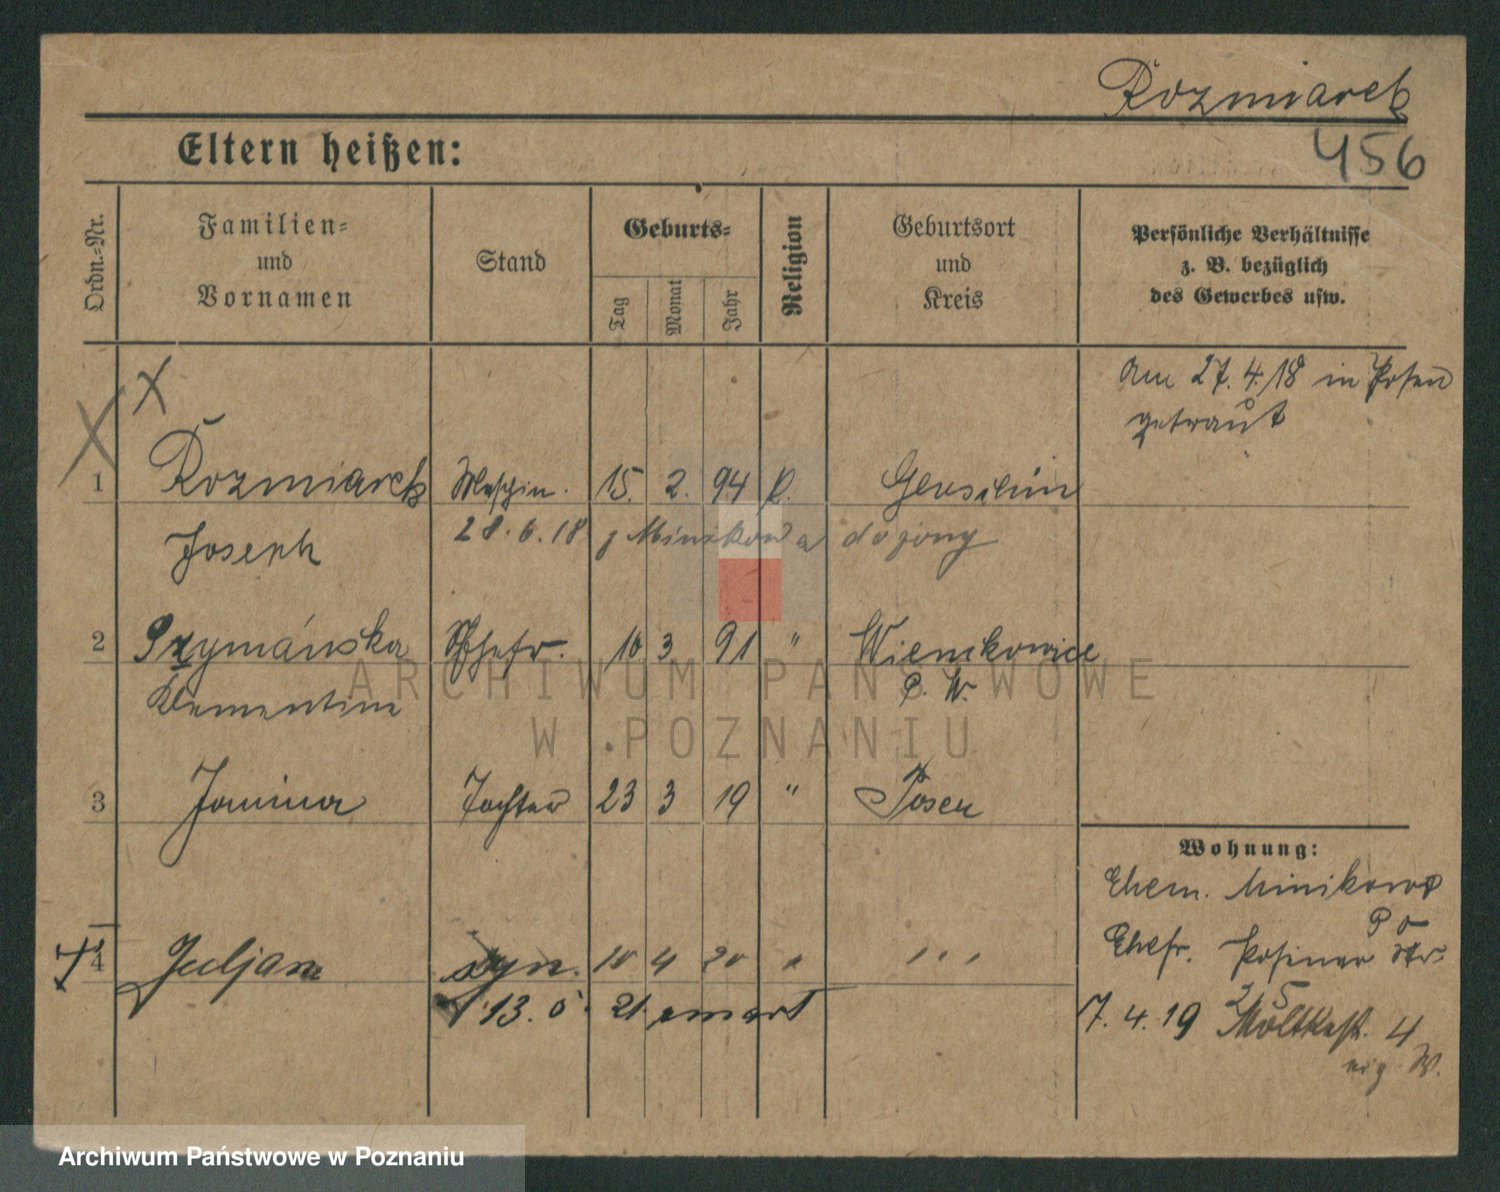 Rozmiarek
456
Eltern heißen:
Ordn.-Nr.
Familien-
und
Vornamen
Stand
Geburts-
Tag
Monat
Jahr
Religion
Geburtsort
und
Kreis
Persönliche Verhältnisse
z. B. bezüglich
des Gewerbes usw.
Am 27.4.18 in Posen
getraut
1 Rozmiarek 15. 2. 94 k.
Joseph 28.6.18 z Minikowa do żony
2 Szymańska Ehefr. 10 3 91 " Wienikowice
Klementine P. W.
3 Janina Tochter 23 3 19 " Posen
Wohnung:
Ehem. Minikowo
Po
4 Juljan syn. 10 4 20 " " "
Ehefr. Posener Str.
25
13. 5. 21 zmarł
7.4.19 Moltkestr. 4
eig. W.
ARCHIWUM PAŃSTWOWE
W POZNANIU
Archiwum Państwowe w Poznaniu